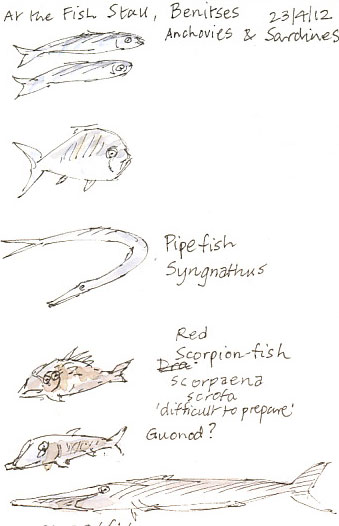 At the Fish Stall, Benitses 23/4/12
Anchovies & Sardines
Pipefish
Syngnathus
Red
Scorpion-fish
scorpaena
scrofa
'difficult to prepare'
Guonod?